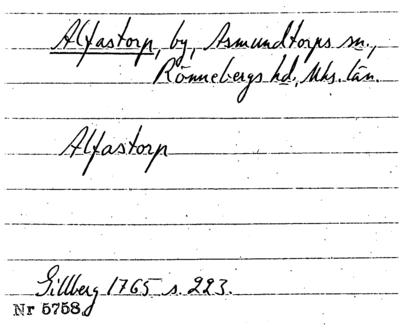 Alfastorp, by, Asmundtorps sn.,
Rönnebergs hd., Mhs. län.
Alfastorp
Gillberg 1765 s. 223.
Nr 5758